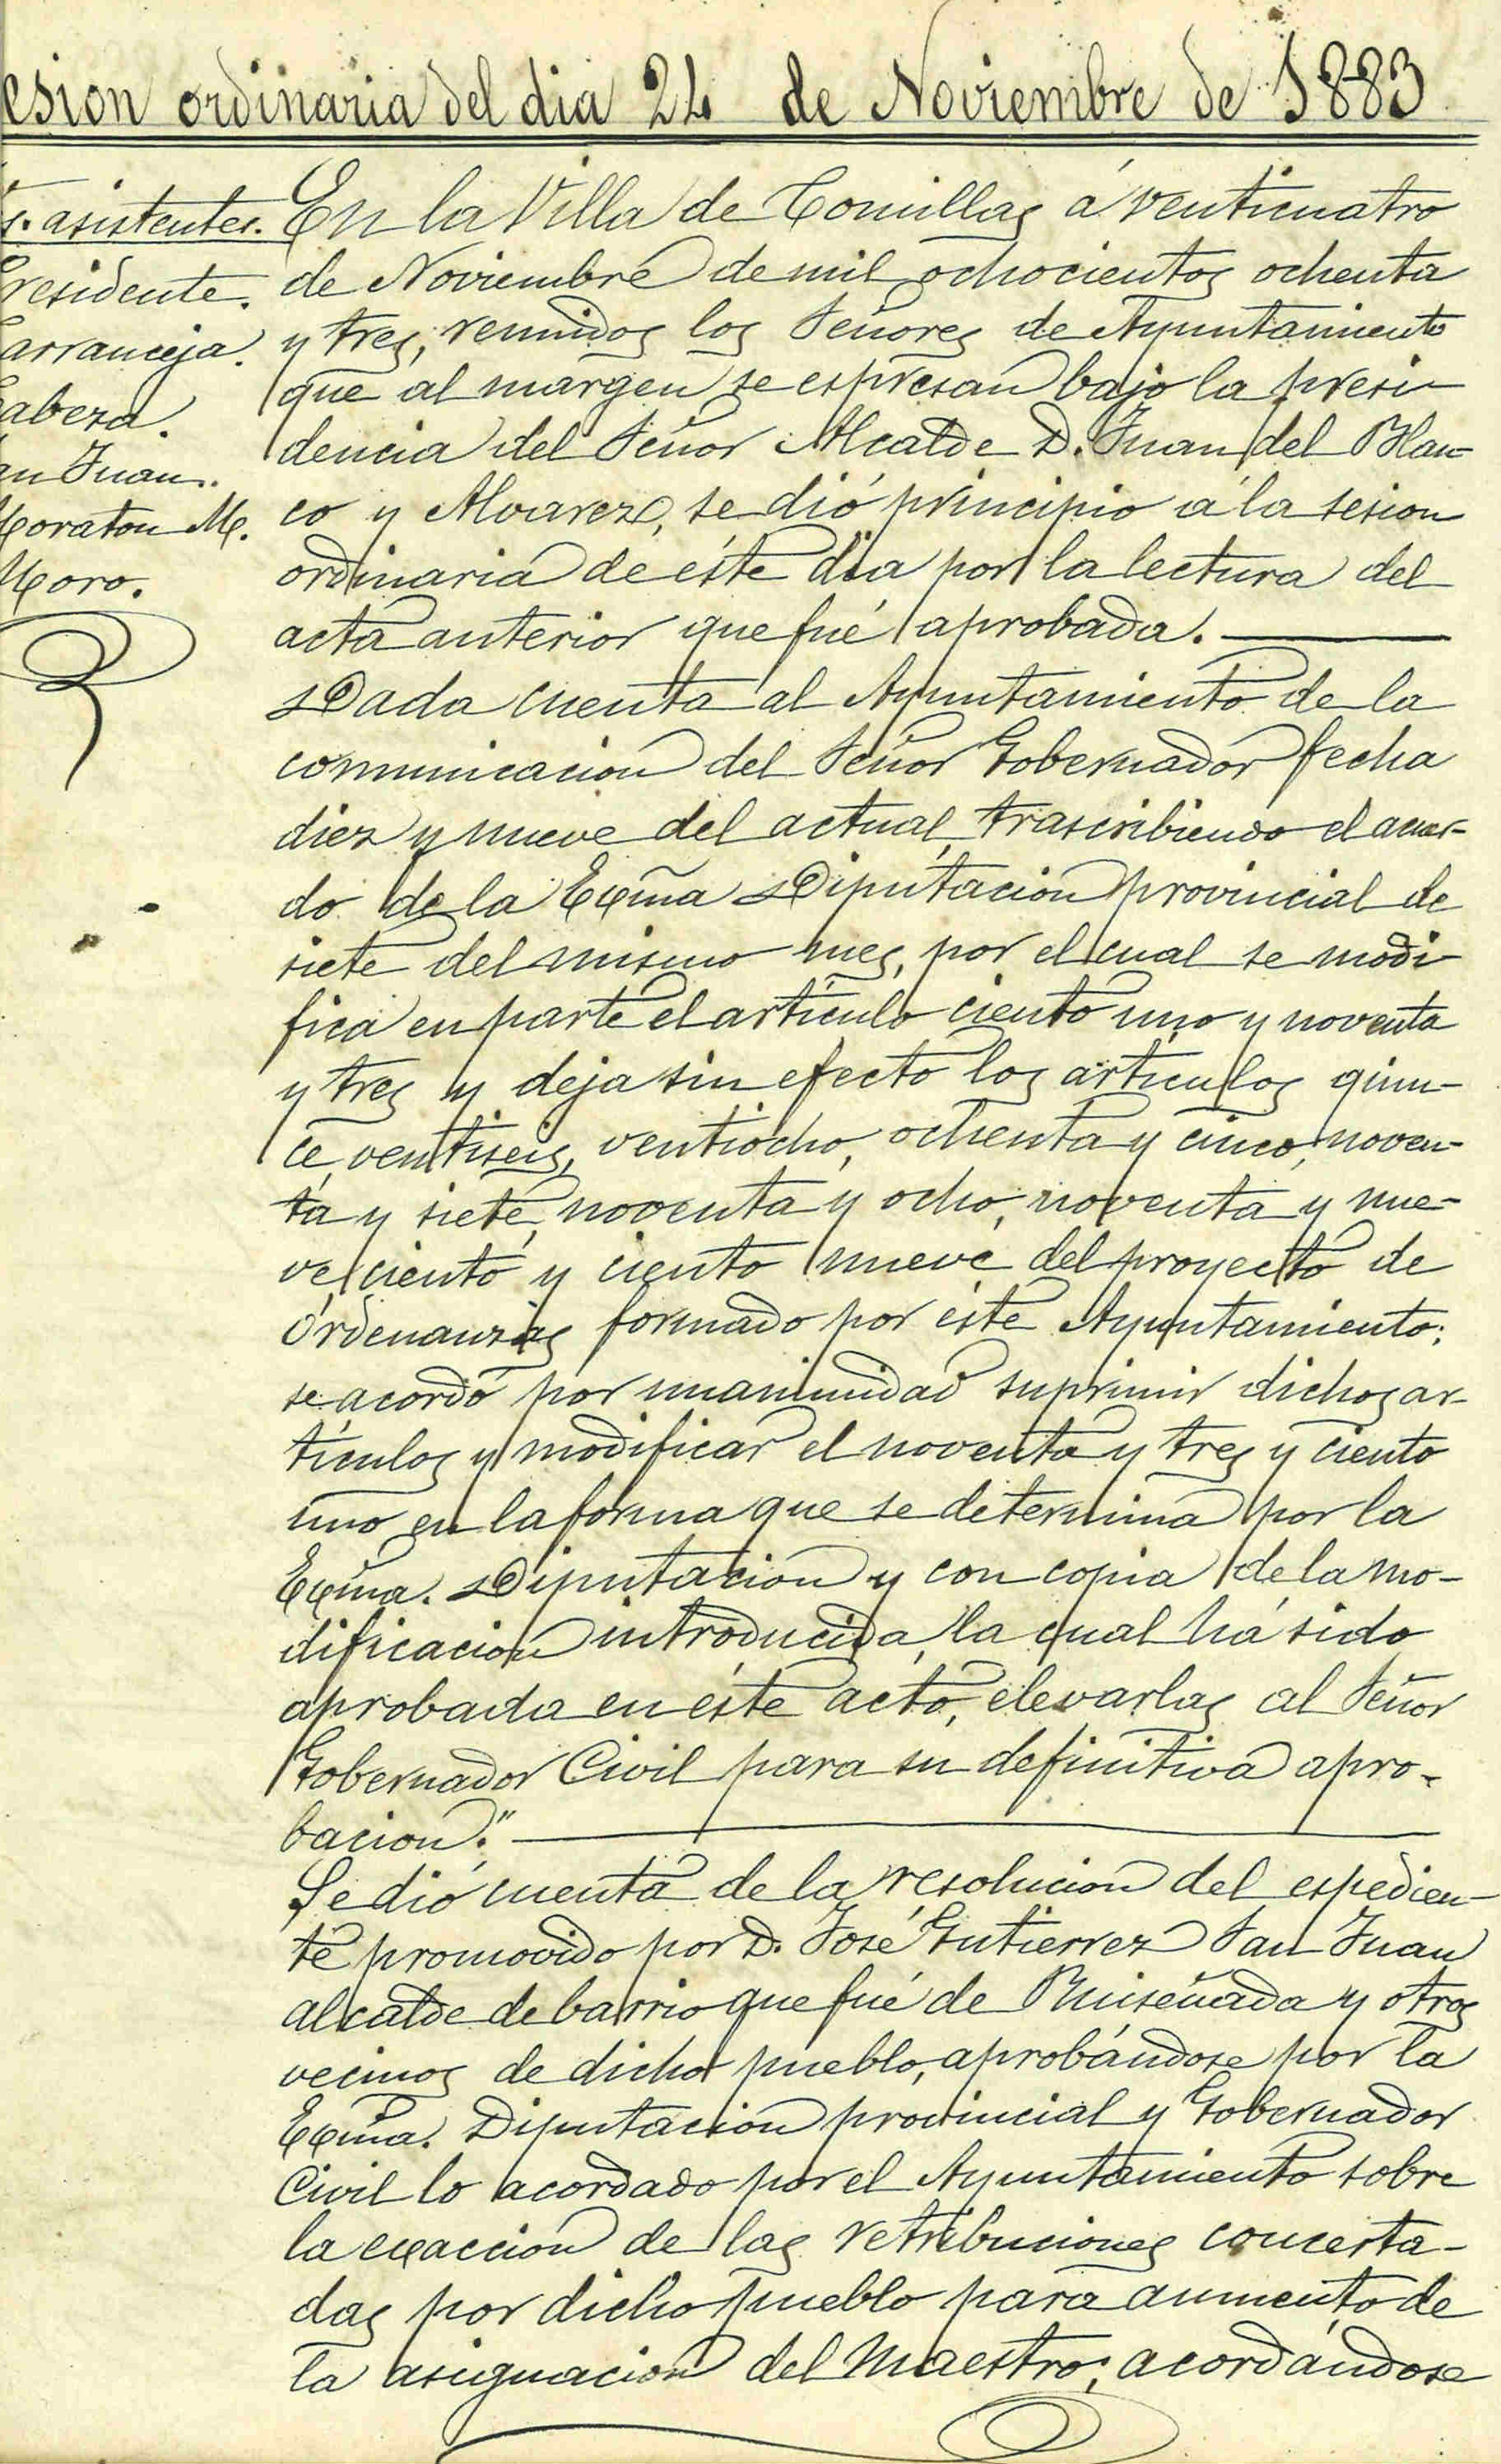 esion ordinaria del dia 24 de Noviembre de 1883
s. asistentes.
residente.
arranceja.
abeza.
an Juan.
Moraton M.
Moro.
En la Villa de Comillas á venticuatro
de Noviembre de mil ochocientos ochenta
y tres, reunidos los Señores de Ayuntamiento
que al margen se espresan bajo la presi-
dencia del Señor Alcalde D. Juan del Blan-
co y Alvarez, se dió principio á la sesion
ordinaria de éste dia por la lectura del
acta anterior que fué aprobada.
Dada cuenta al Ayuntamiento de la
comunicacion del Señor Gobernador fecha
diez y nueve del actual, trascribiendo el acuer-
do de la Exma Diputacion provincial de
siete del mismo mes, por el cual se modi-
fica en parte el artículo ciento uno y noventa
y tres y deja sin efecto los artículos quin-
ce, ventiseis, ventiocho, ochenta y cinco, noven-
ta y siete, noventa y ocho, noventa y nue-
ve, ciento y ciento nueve del proyecto de
Ordenanzas formado por éste Ayuntamiento;
se acordó por unanimidad suprimir dichos ar-
tículos y modificar el noventa y tres y ciento
uno en la forma que se determina por la
Exma. Diputacion y con copia de la mo-
dificacion introducida, la qual há sido
aprobada en éste acto, elevarlas al Señor
Gobernador Civil para su definitiva apro-
bacion."
Se dió cuenta de la resolucion del espedien-
te promovido por D. José Gutierrez San Juan
alcalde de barrio que fué de Ruiseñada y otros
vecinos de dicho pueblo, aprobándose por la
Exma. Diputacion provincial y Gobernador
Civil lo acordado por el Ayuntamiento sobre
la exaccion de las retribuciones concerta-
das por dicho pueblo para aumento de
la asignacion del Maestro; acordándose